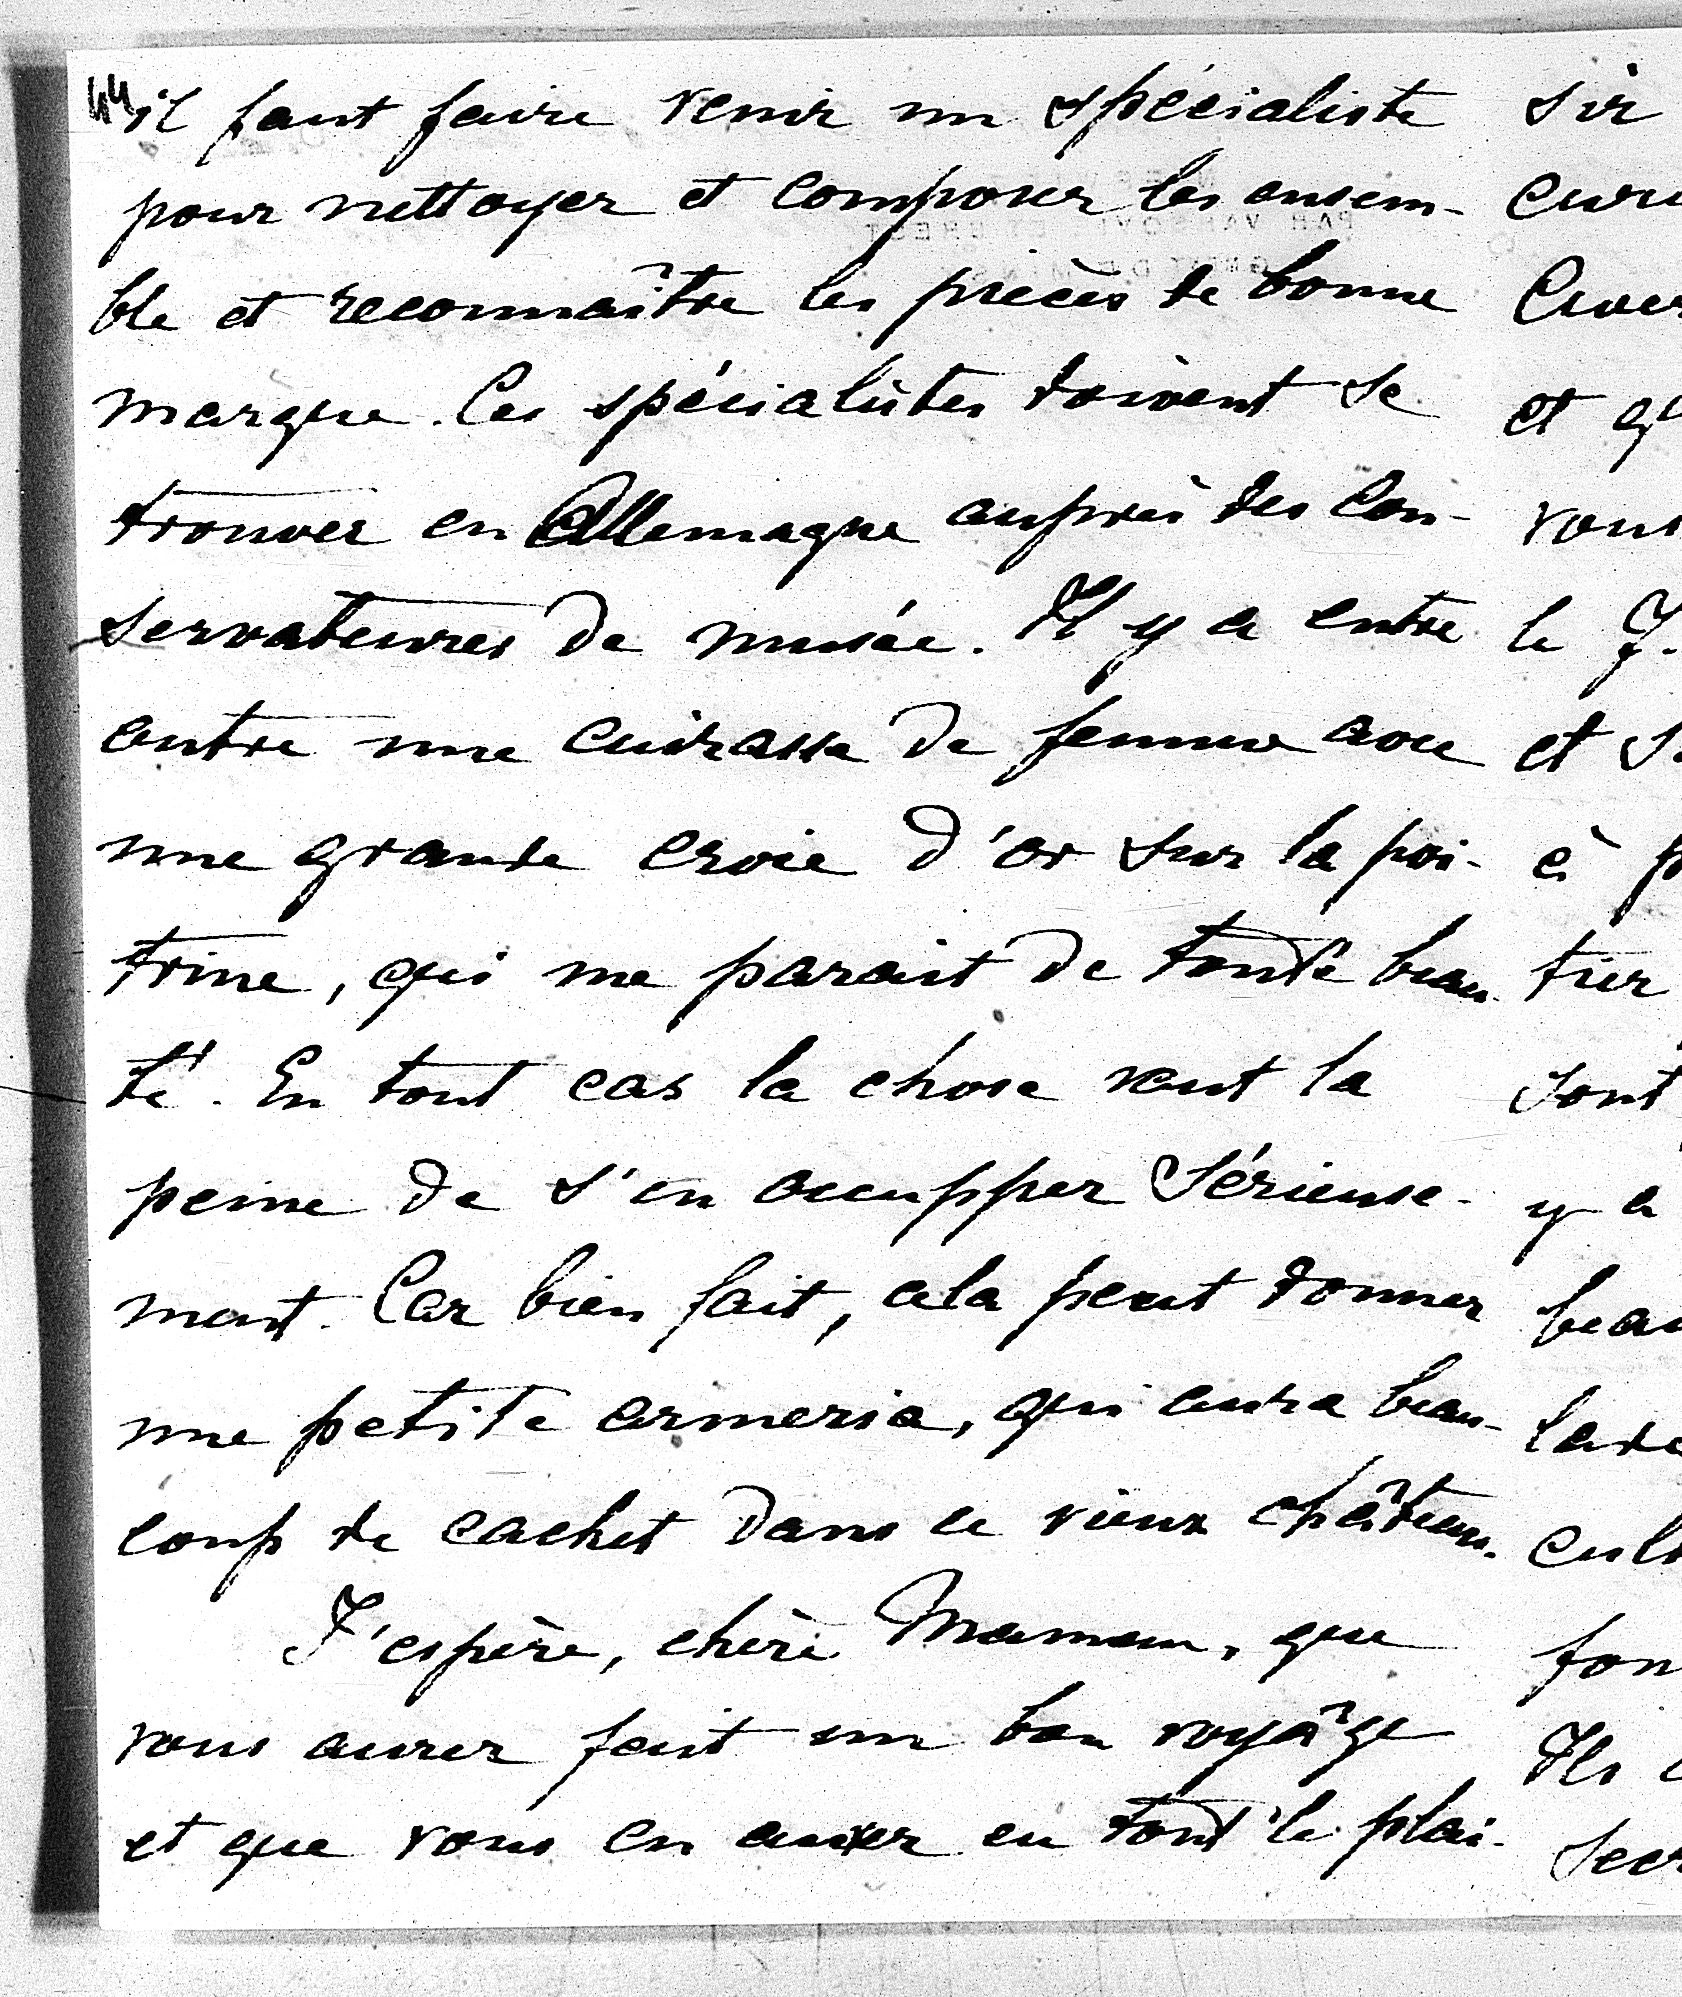 44
il faut faire venir un spécialiste
pour nettoyer et composer les ensem-
ble et reconnaître les pièces de bonne
marque. Ces spécialistes doivent se
trouver en Allemagne auprès des con-
servateures de musée. Il y a entre
autre une cuirasse de femme avec
une grande croix d'or sur la poi-
trine, qui me parait de toute beau-
té. En tout cas la chose vaut la
peine de s'en occupper sérieuse-
ment. Car bien fait, cela peut donner
une petite armeria, qui aura beau-
coup de cachet dans ce vieux château.
J'espère, chère Maman, que
vous aurez fait un bon voyâge
et que vous en aurez eu tout le plai-
sir
et
vous
le J.
et
à
tier
sont
y a
Ils